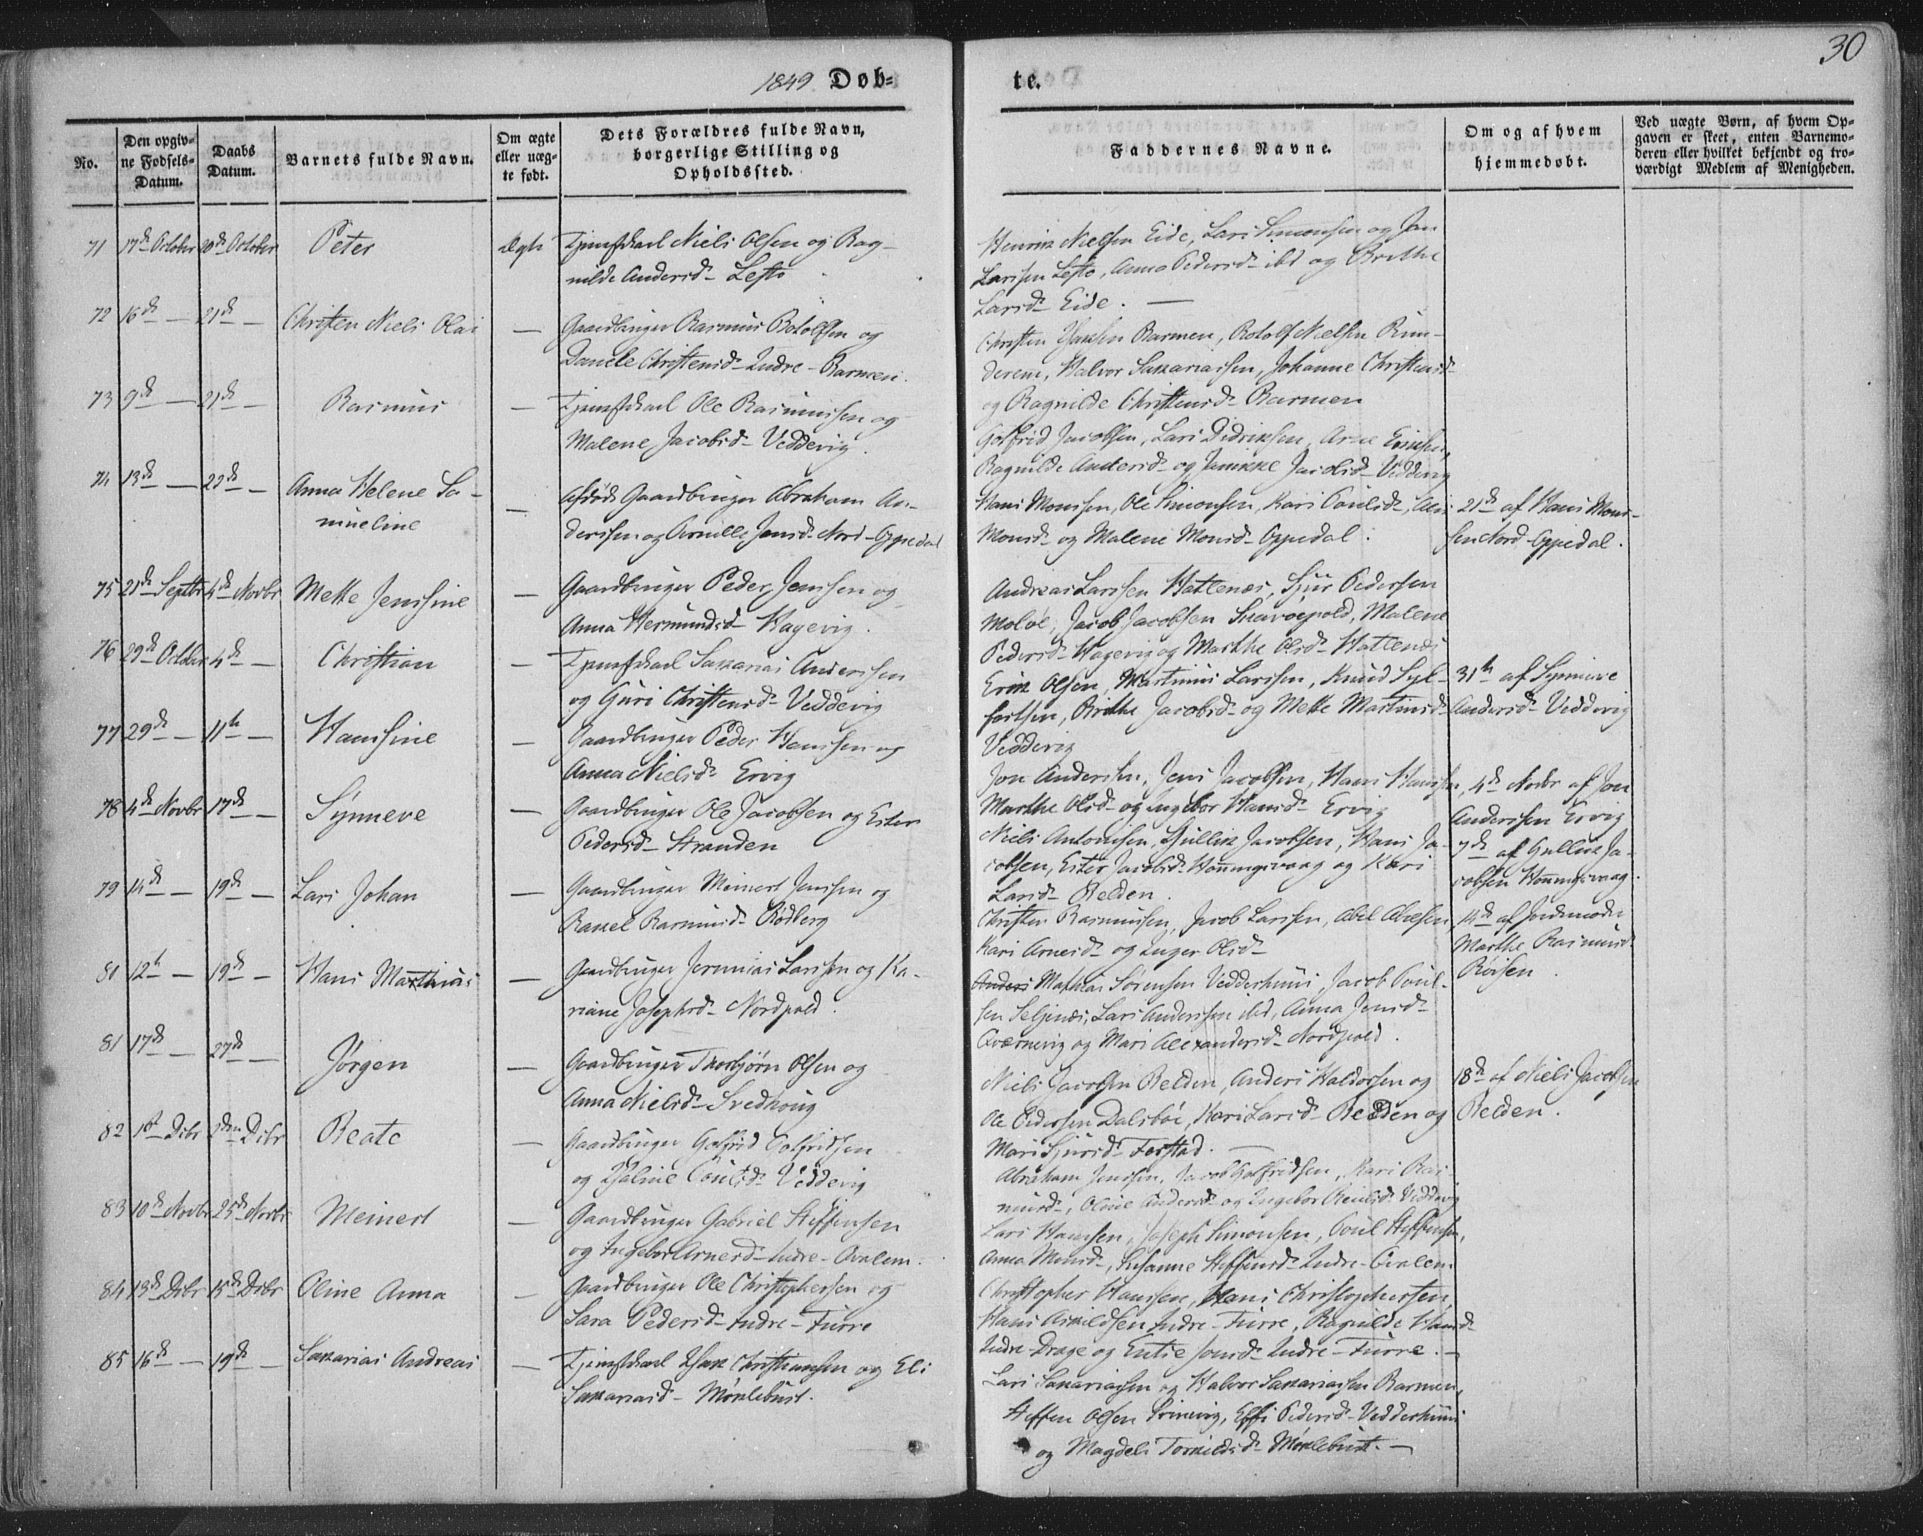 30
1849 Døb-
te.
No.
Den opgiv-
ne Fødsels-
Datum.
Daabs
Datum.
Barnets fulde Navn.
Om ægte
eller uæg-
te født.
Dets Forældres fulde Navn,
borgerlige Stilling og
Opholdssted.
Faddernes Navne.
Om og af hvem
hjemmedøbt.
Ved uægte Børn, af hvem Op-
gaven er skeet, enten Barnemo-
deren eller hvilket bekjendt og tro-
værdigt Medlem af Menigheden.
71 17de October 20de October Peter ægte Tjenstkarl Niels Olsen og Rag-
nilde Andersd- Lefto
Henrik Nielsen Eide, Lars Simonsen og Jan
Larssen Lefto, Anna Pedersd- ibd og Brithe
Larsd- Eide.
72 16de — 21de — Christen Niels Olai — Gaardbruger Rasmus Botolfsen og
Daniele Christensd- Indre-Barmen.
Christen Barmen, Botolf Nielsen Run-
derem, Halvor Sakariassen, Johanne Christensd-
og Ragnilde Christensd- Barmen
73 9de — 21de — Rasmus — Tjenstkarl Ole Rasmussen og
Malene Jacobsd- Veddevig.
Golfrid Jacobsen, Lars Didriksen, Arne
Ragnilde Andersd- og Jacobsd- Veddevig
74 13de — 22de — Anna Helene Sa-
mueline — Afdøde Gaardbruger Abraham An-
derssen og Jensd- Nord-Oppedal
Hans Monssen, Ole Simonsen, Kari Paulsd-,
Monsd- og Malene Monsd- Oppedal.
21de af Hans Mons-
sen Nord-Oppedal.
75 21de Septbr 4de Novbr Mette Jenssine — Gaardbruger Peder Jenssen og
Anna Hermundsd- Hagevig.
Andreas Larssen Hatlenæs, Sjur Pedersen
Moløe, Jacob Jacobsen, Malene
Pedersd- Hagevig og Marthe Olsd- Hatlenæs
76 29de October 4de — Christian — Tjenstkarl Sakarias Anderssen
og Guri Christensd- Veddevig
Erik Olsen, Martinus Larssen, Knud Syl-
festsen, Brithe Jacobsd- og Mette Martinsd-
Veddevig
31te af Synneve
Andersd- Veddevig
77 29de — 11te — Hanssine — Gaardbruger Peder Hanssen og
Anna Nielsd- Ervig
Jon Anderssen, Jens Jacobsen, Hans Hanssen,
Marthe Olsd- og Ingebor Hansd- Ervig
4de Novbr af Jon
Anderssen Ervig
78 4de Novbr 17de — Synneve — Gaardbruger Ole Jacobsen og Ester
Pedersd- Stranden
Niels Antonsen, Gullik Jacobsen, Hans Ja-
cobsen, Ester Jacobsd- Honningsvaag og Kari
Larsd- Relden.
7de af Gullik Ja-
cobsen Honningsvaag.
79 14de — 19de — Lars Johan — Gaardbruger Meinert Jenssen og
Rakel Rasmusd- Rødberg
Christen Rasmussen, Jacob Larssen, Abel Abelsen,
Kari Arnesd- og Inger Olsd-
14de af Jordemoder
Marthe Rasmusd-
Røisen.
81 12te — 19de — Hans Mathias — Gaardbruger Jeremias Larssen og Ka-
riane Josephsd- Nordpold.
Anders Mathias Sørensen Vedderhuus, Jacob Poul-
sen Seljenæs, Lars Anderssen ibd, Anna Jensd-
Qværnevig og Mari Alexandersd- Nordpold.
81 17de — 27de — Jørgen — Gaardbruger Thorbjørn Olsen og
Anna Nielsd- Svedhoug
Niels Jacobsen Relden, Anders Haldorsen og
Ole Pedersen Dalsbøe, Kari Larsd- Relden og
Mari Sjursd- Forstad.
18de af Niels Jacobsen
Relden.
82 1ste Dcbr 2den Dcbr Beate — Gaardbruger Golfrid Golfridsen
og Paulsd- Veddevig
Abraham Jenssen, Jacob Golfridsen, Kari Ras-
musd-, Oline Andersd- og Ingebor Veddevig
83 10de Novbr 25de Novbr Meinert — Gaardbruger Gabriel Steffensen
og Ingebor Arnesd- Indre-Qvalem.
Lars Hanssen, Joseph Simonsen, Poul Steffensen,
Anna Monsd-, Susanne Steffensd- Indre-Qvalem
84 13de Dcbr 15de Dcbr Oline Anna — Gaardbruger Ole Christophersen og
Sara Pedersd- Indre-Furre
Christopher Hanssen, Hans Christophersen,
Hans Askildsen Indre-Furre, Ragnilde Hansd-
Indre-Drage og Jonsd- Indre-Furre.
85 16de — 19de — Sakarias Andreas — Tjenstkarl Isak Christiansen og Eli
Sakariasd- Møklebust.
Lars Sakariassen og Halvor Sakariassen Barmen,
Steffen Olsen, Pedersd- Vedderhuus
og Magdeli Torkildsd- Møklebust.